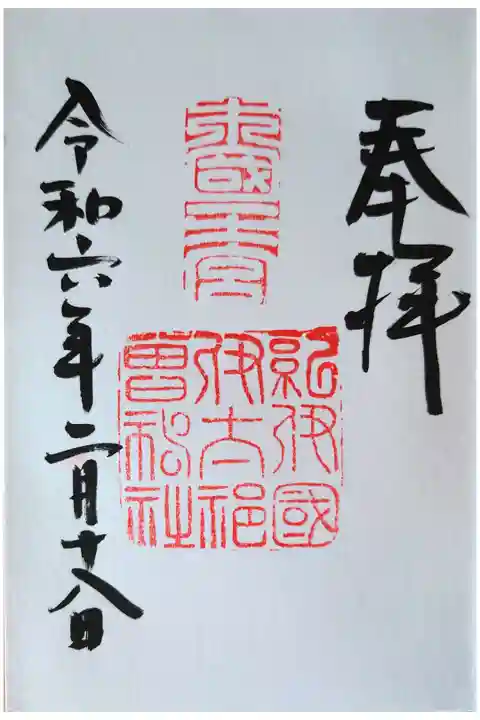 奉拝
紀伊國
伊太祁
曾神社
令和六年二月十八日